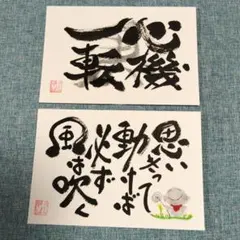 心機
一転
思いきって
動けば
必ず
風は吹く